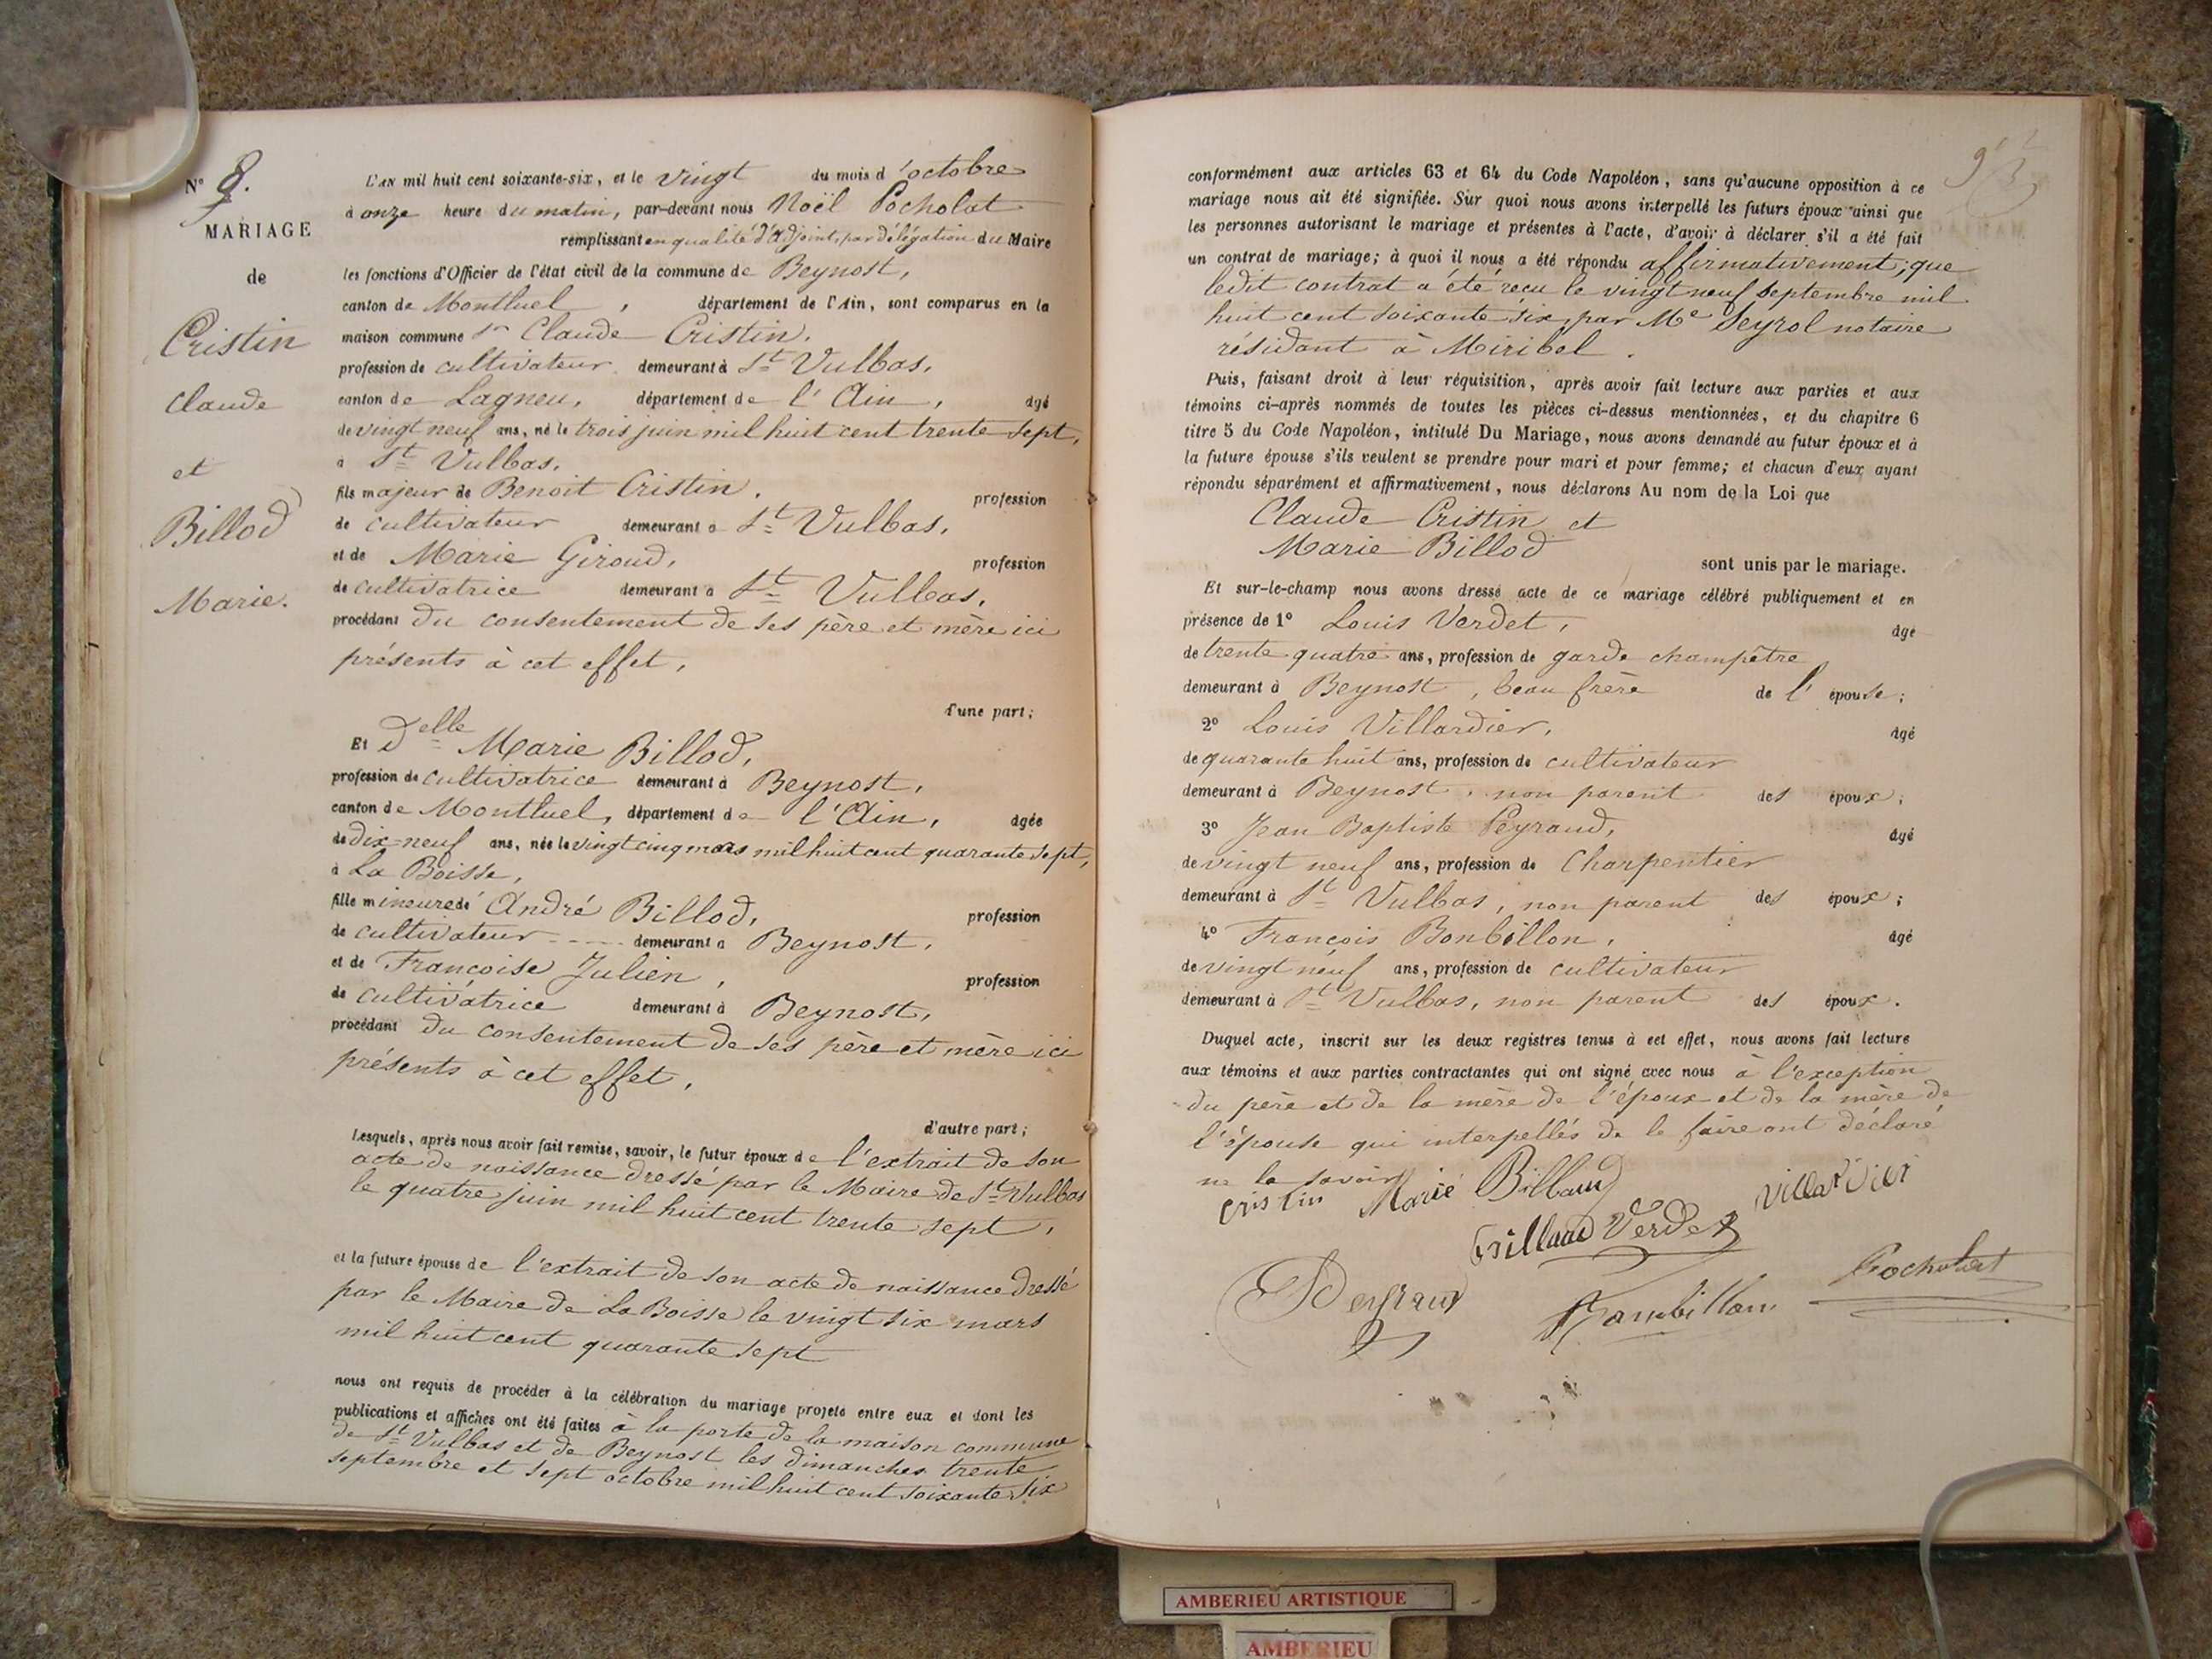 N° 8.
MARIAGE
de
Cristin
Claude
et
Billod
Marie.
L'AN mil huit cent soixante-six, et le vingt du mois d'octobre
à onze heure du matin, par-devant nous Noël Pocholat
remplissant en qualité d'adjoint, par délégation du Maire
les fonctions d'Officier de l'état civil de la commune de Beynost,
canton de Montluel, département de l'Ain, sont comparus en la
maison commune Sr Claude Cristin.
profession de cultivateur demeurant à St Vulbas.
canton de Lagneu, département de l'Ain, âgé
de vingt neuf ans, né le trois juin mil huit cent trente sept,
à St Vulbas.
fils majeur de Benoit Cristin. profession
de cultivateur demeurant à St Vulbas.
et de Marie Giroud, profession
de cultivatrice demeurant à St Vulbas.
procédant du consentement de ses père et mère ici
présents à cet effet,
d'une part;
Et Delle Marie Billod,
profession de cultivatrice demeurant à Beynost,
canton de Montluel, département de l'Ain, âgée
de dix-neuf ans, née le vingt cinq mars mil huit cent quarante sept,
à La Boisse,
fille mineure de André Billod, profession
de cultivateur demeurant à Beynost,
et de Françoise Julien, profession
de cultivatrice demeurant à Beynost,
procédant du consentement de ses père et mère ici
présents à cet effet,
d'autre part;
Lesquels, après nous avoir fait remise, savoir, le futur époux de l'extrait de son
acte de naissance dressé par le Maire de St Vulbas
le quatre juin mil huit cent trente sept,
et la future épouse de l'extrait de son acte de naissance dressé
par le Maire de La Boisse le vingt six mars
mil huit cent quarante sept
nous ont requis de procéder à la célébration du mariage projeté entre eux et dont les
publications et affiches ont été faites à la porte de la maison commune
de St Vulbas et de Beynost les dimanches trente
septembre et sept octobre mil huit cent soixante six
conformément aux articles 63 et 64 du Code Napoléon, sans qu'aucune opposition à ce
mariage nous ait été signifiée. Sur quoi nous avons interpellé les futurs époux ainsi que
les personnes autorisant le mariage et présentes à l'acte, d'avoir à déclarer s'il a été fait
un contrat de mariage; à quoi il nous a été répondu affirmativement; que
ledit contrat a été reçu le vingt neuf septembre mil
huit cent soixante six, par Me Seyrol notaire
résidant à Miribel.
Puis, faisant droit à leur réquisition, après avoir fait lecture aux parties et aux
témoins ci-après nommés de toutes les pièces ci-dessus mentionnées, et du chapitre 6
titre 5 du Code Napoléon, intitulé Du Mariage, nous avons demandé au futur époux et à
la future épouse s'ils veulent se prendre pour mari et pour femme; et chacun d'eux ayant
répondu séparément et affirmativement, nous déclarons Au nom de la Loi que
Claude Cristin et
Marie Billod
sont unis par le mariage.
Et sur-le-champ nous avons dressé acte de ce mariage célébré publiquement et en
présence de 1° Louis Verdet, âgé
de trente quatre ans, profession de garde champêtre
demeurant à Beynost, beau frère de l'épouse;
2° Louis Villardier, âgé
de quarante huit ans, profession de cultivateur
demeurant à Beynost, non parent des époux;
3° Jean Baptiste Peyraud, âgé
de vingt neuf ans, profession de Charpentier
demeurant à St Vulbas, non parent des époux;
4° François Bonbillon, âgé
de vingt neuf ans, profession de cultivateur
demeurant à St Vulbas, non parent des époux.
Duquel acte, inscrit sur les deux registres tenus à cet effet, nous avons fait lecture
aux témoins et aux parties contractantes qui ont signé avec nous à l'exception
du père et de la mère de l'époux et de la mère de
l'épouse qui interpellés de le faire ont déclaré
ne le savoir
Cristin Marie Billaud
Billaud Verdet
Pocholat
AMBERIEU ARTISTIQUE
AMBERIEU